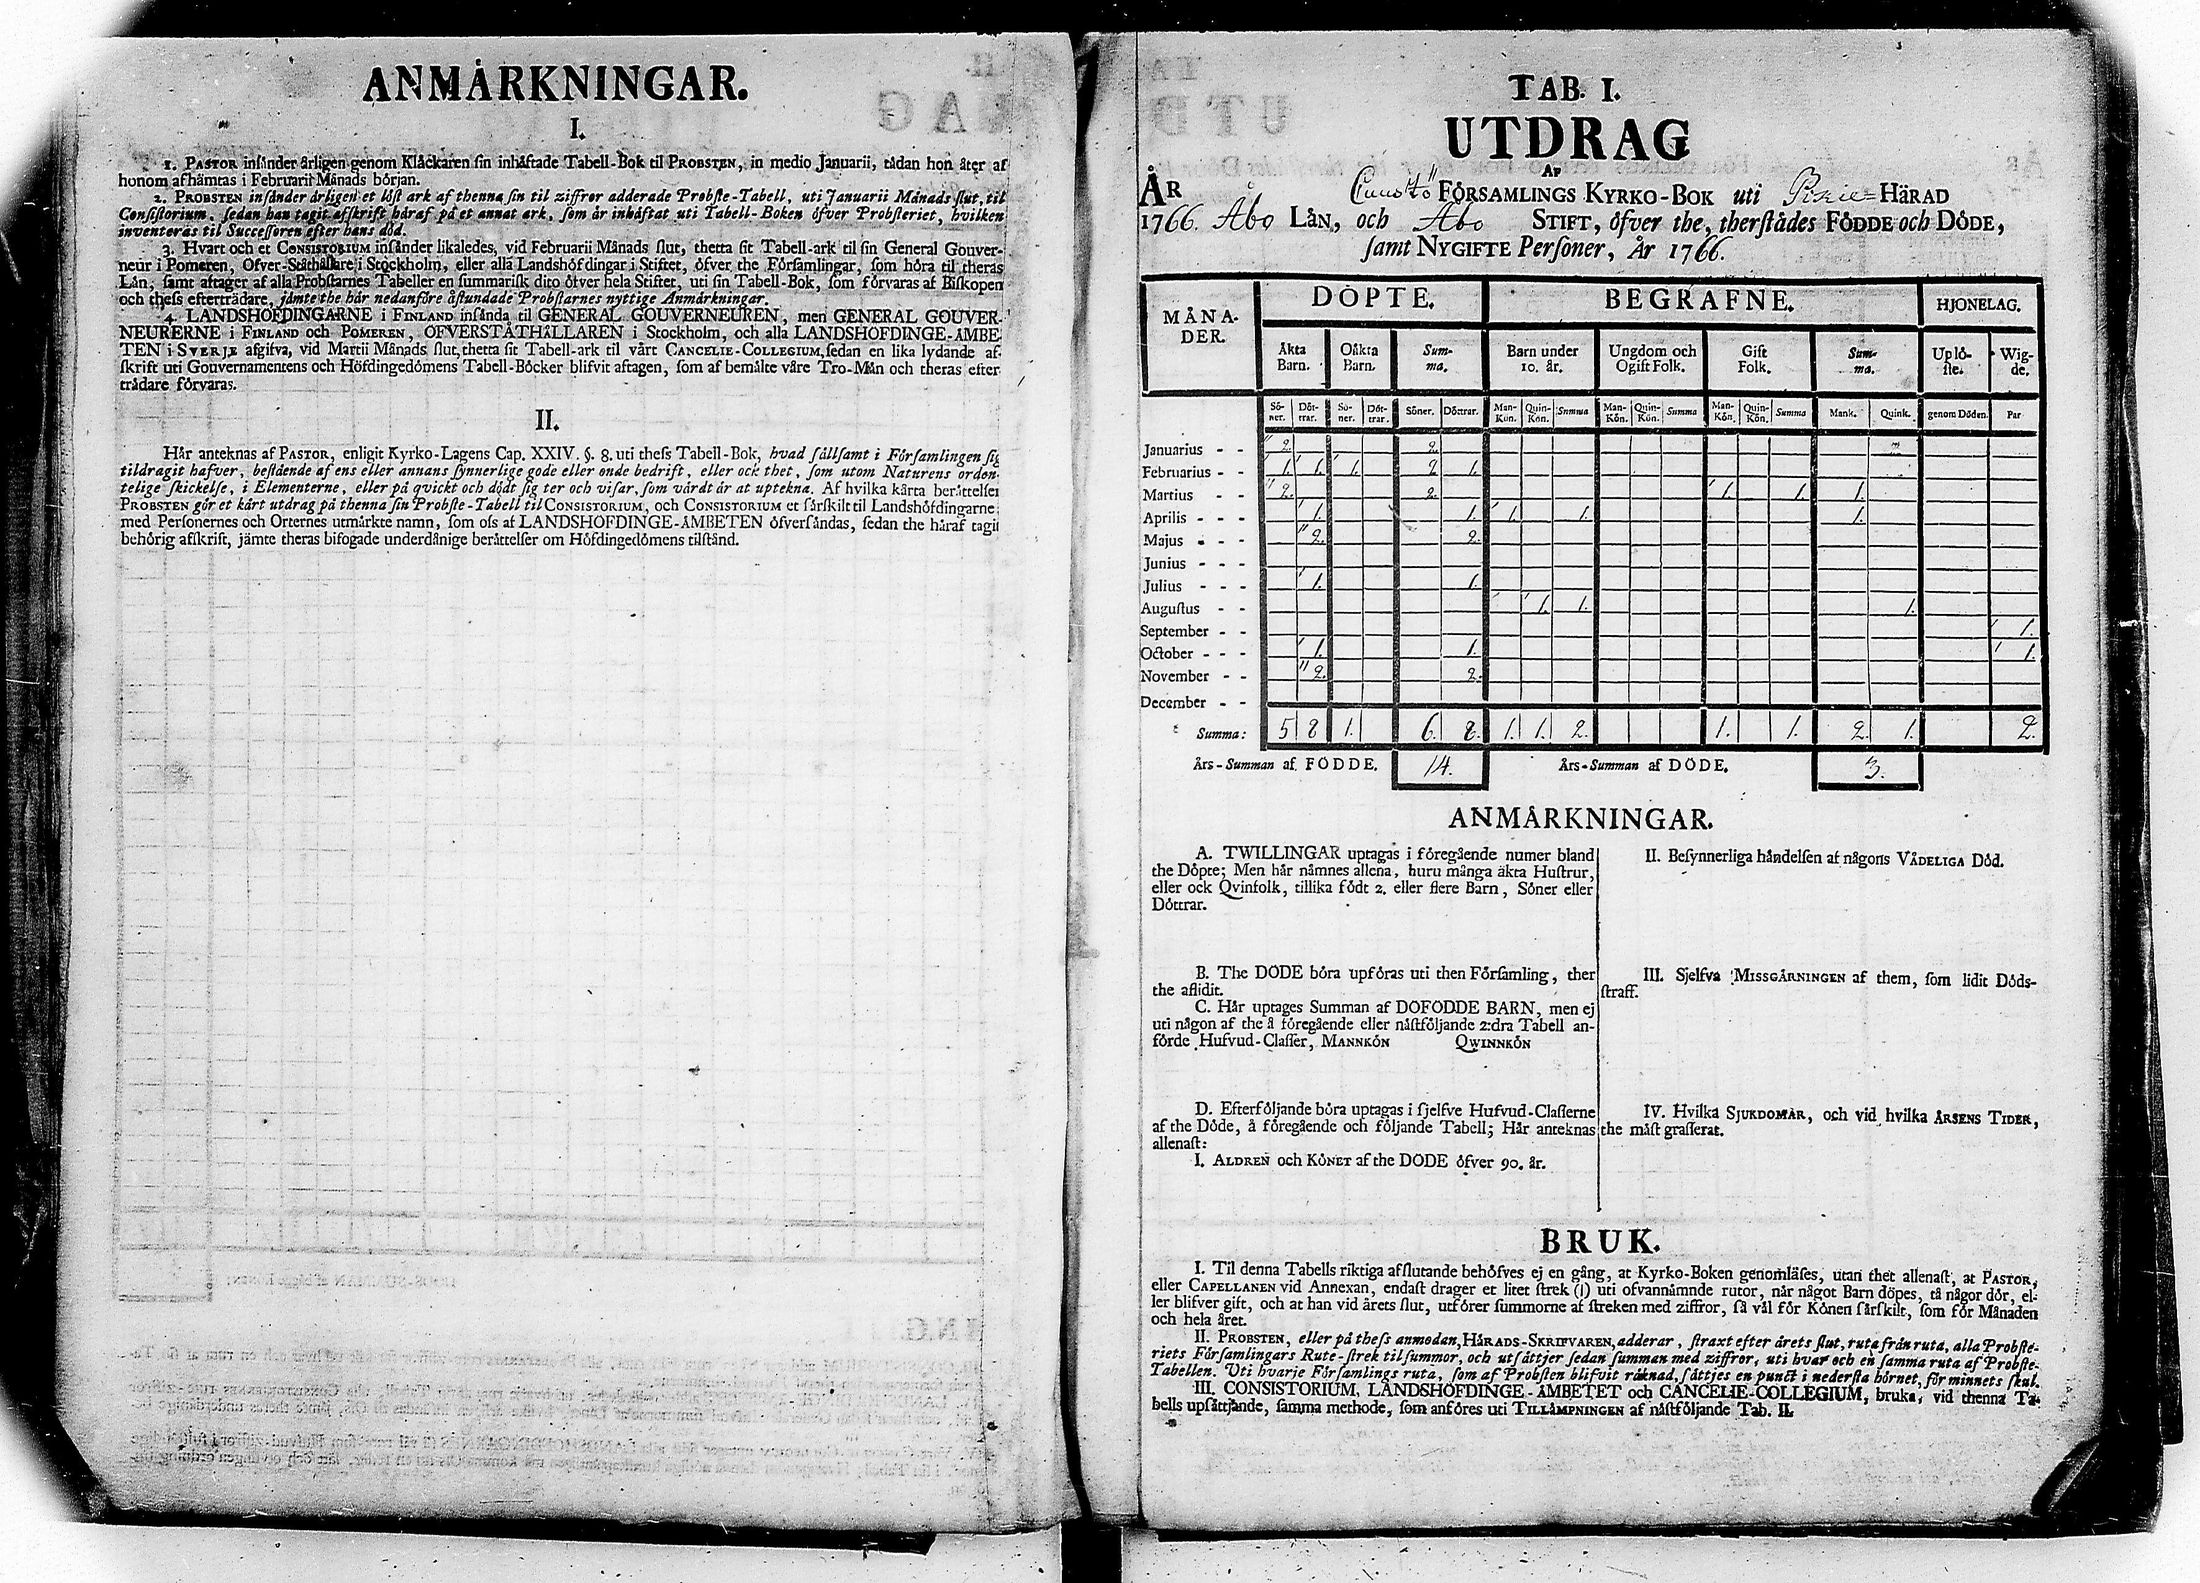 ANMÄRKNINGAR.
I.
1. PASTOR insänder årligen genom Klåckaren sin inhäftade Tabell-Bok til PROBSTEN, in medio Januarii, tådan hon åter af
honom afhämtas i Februarii Månads början.
2. PROBSTEN insänder årligen et löst ark af thenna sin til ziffror adderade Probste-Tabell, uti Januarii Månads slut, til
Consistorium, sedan han tagit afskrift häraf på et annat ark, som är inhäftat uti Tabell-Boken öfver Probsteriet, hvilken
inventeras til Successoren efter hans död.
3. Hvart och et CONSISTORIUM insänder likaledes, vid Februarii Månads slut, thetta sit Tabell-ark til sin General Gouver-
neur i Pomeren, Öfver-Ståthållare i Stockholm, eller alla Landshöfdingar i Stiftet, öfver the Församlingar, som höra til theras
Län, samt aftager af alla Probstarnes Tabeller en summarisk dito öfver hela Stiftet, uti sin Tabell-Bok, som förvaras af Biskopen
och thess efterträdare, jämte the här nedanföre åstundade Probstarnes nyttige Anmärkningar.
4. LANDSHÖFDINGARNE i FINLAND insända til GENERAL GOUVERNEUREN, men GENERAL GOUVER-
NEURERNE i FINLAND och POMEREN, ÖFVERSTÅTHÅLLAREN i Stockholm, och alla LANDSHÖFDINGE-ÄMBE
TEN i SVERJE afgifva, vid Martii Månads slut, thetta sit Tabell-ark til vårt CANCELIE-COLLEGIUM, sedan en lika lydande af-
skrift uti Gouvernamentens och Höfdingedömens Tabell-Böcker blifvit aftagen, som af bemälte våre Tro-Män och theras efter
trädare förvaras.
II.
Här anteknas af PASTOR, enligit Kyrko-Lagens Cap. XXIV. §. 8. uti thess Tabell-Bok, hvad sällsamt i Församlingen sig
tildragit hafver, bestående af ens eller annans synnerlige gode eller onde bedrift, eller ock thet, som utom Naturens orden-
telige skickelse, i Elementerne, eller på qvickt och dödt sig ter och visar, som värdt är at uptekna. Af hvilka kårta berättelser
PROBSTEN gör et kårt utdrag på thenna sin Probste-Tabell til CONSISTORIUM, och CONSISTORIUM et särskilt til Landshöfdingarne,
med Personernes och Orternes utmärkte namn, som oss af LANDSHÖFDINGE-ÄMBETEN öfversändas, sedan the häraf tagit
behörig afskrift, jämte theras bifogade underdånige berättelser om Höfdingedömens tilstånd.
TAB. I.
UTDRAG
AF
ÅR Cuustö FÖRSAMLINGS KYRKO-BOK uti Pikie HÄRAD
1766. Åbo LÄN, och Åbo STIFT, öfver the, therstädes FÖDDE och DÖDE,
samt NYGIFTE Personer, År 1766.
MÅNA-
DER. DÖPTE. BEGRAFNE. HJONELAG.
Äkta Barn. Oäkta Barn. Sum-ma. Barn under 10. år. Ungdom och Ogift Folk. Gift Folk. Sum-ma. Uplö-ste. Wig-de.
Sö-ner. Döt-trar. Sö-ner. Döt-trar. Söner. Döttrar. Man-Kön. Quin-Kön. Summa Man-Kön. Quin-Kön. Summa Man-Kön. Quin-Kön. Summa Mank. Quink. genom Döden. Par
Januarius 2. 2.
Februarius - - 1. 1. 1. 2 1.
Martius - - - 2. 2. 1. 1. 1.
Aprilis - - - 1. 1. 1. 1. 1.
Majus - - - 2. 2.
Junius - - -
Julius - - - 1. 1.
Augustus - - 1. 1. 1.
September - - 1.
October - - - 1. 1. 1.
November - - 2. 2.
December - -
Summa: 5 8 1. 6. 8. 1. 1. 2. 1. 1. 2. 1. 2.
Års-Summan af FÖDDE. 14. Års-Summan af DÖDE. 3.
ANMÄRKNINGAR.
A. TWILLINGAR uptagas i föregående numer bland
the Döpte; Men här nämnes allena, huru många äkta Hustrur,
eller ock Qvinfolk, tillika födt 2. eller flere Barn, Söner eller
Döttrar.
B. The DÖDE böra upföras uti then Församling, ther
the aflidit.
C. Här uptages Summan af DÖFÖDDE BARN, men ej
uti någon af the å föregående eller nästföljande 2:dra Tabell an-
förde Hufvud-Classer, MANNKÖN QWINNKÖN
D. Efterföljande böra uptagas i sjelfve Hufvud-Classerne
af the Döde, å föregående och följande Tabell; Här anteknas
allenast:
I. ÅLDREN och KÖNET af the DÖDE öfver 90. år.
II. Besynnerliga händelsen af någons VÅDELIGA Död.
III. Sjelfva MISSGÄRNINGEN af them, som lidit Döds-
straff.
IV. Hvilka SJUKDOMAR, och vid hvilka ÅRSENS TIDER,
the mäst grasserat.
BRUK.
I. Til denna Tabells riktiga afslutande behöfves ej en gång, at Kyrko-Boken genomläses, utan thet allenast, at PASTOR,
eller CAPELLANEN vid Annexan, endast drager et litet strek (|) uti ofvannämnde rutor, när något Barn döpes, tå någor dör, el-
ler blifver gift, och at han vid årets slut, utförer summorne af streken med ziffror, så väl för Könen särskilt, som för Månaden
och hela året.
II. PROBSTEN, eller på thess anmodan, HÄRADS-SKRIFVAREN, adderar, straxt efter årets slut, ruta från ruta, alla Probste-
riets Församlingars Rute-strek til summor, och utsättjer sedan summan med ziffror, uti hvar och en samma ruta af Probste-
Tabellen. Uti hvarje Församlings ruta, som af Probsten blifvit räknad, sättjes en punct i nedersta hörnet, för minnets skul.
III. CONSISTORIUM, LANDSHÖFDINGE-ÄMBETET och CANCELIE-COLLEGIUM, bruka, vid thenna Ta-
bells upsättjande, samma methode, som anföres uti TILLÄMPNINGEN af nästföljande Tab. II.